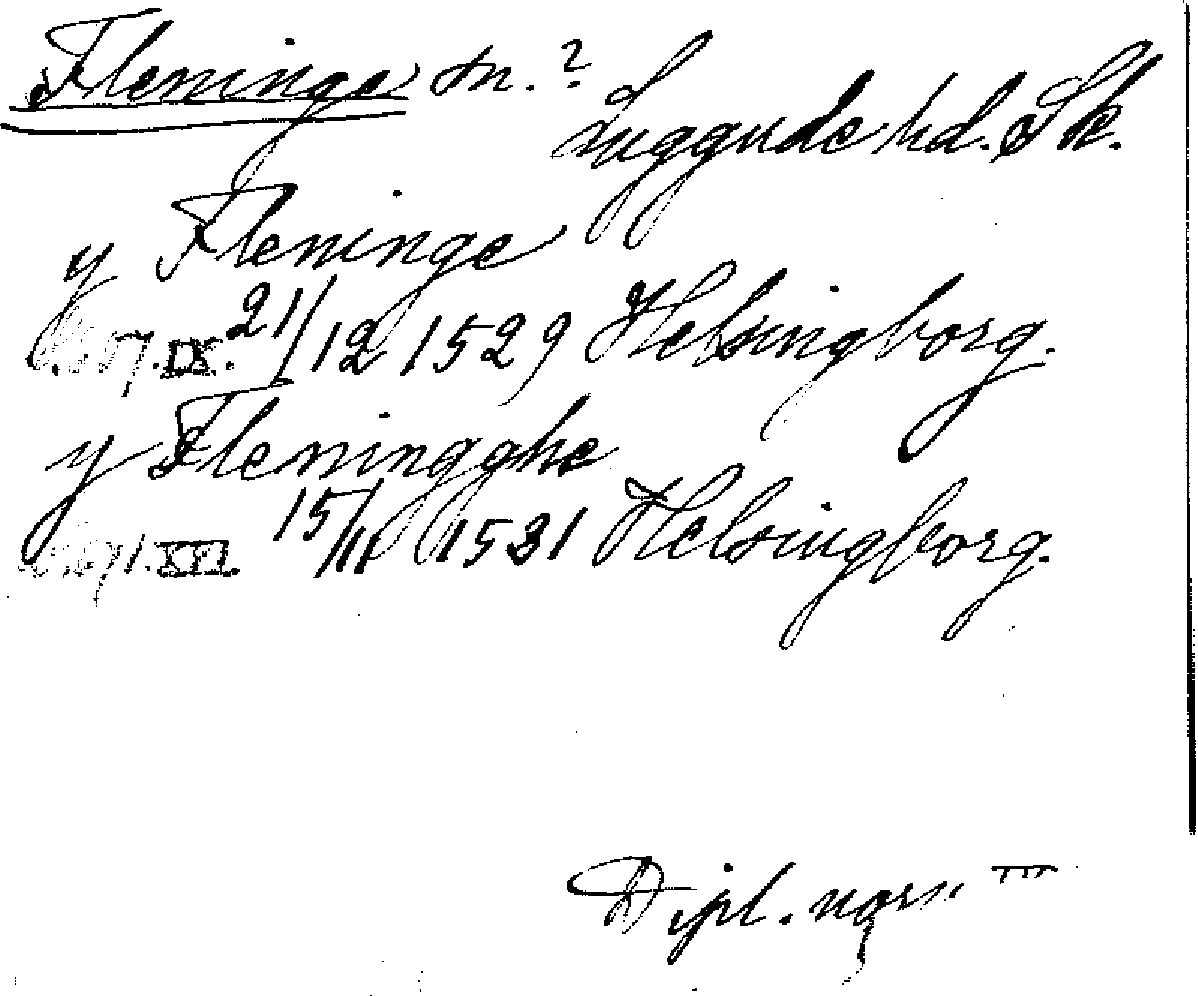 Fleninge sn.?
Luggude hd. Sk.
y Fleninge
IX. 21/12 1529 Helsingborg.
y Fleningghe
XVI. 15/11 1531 Helsingborg.
Dipl. norv.